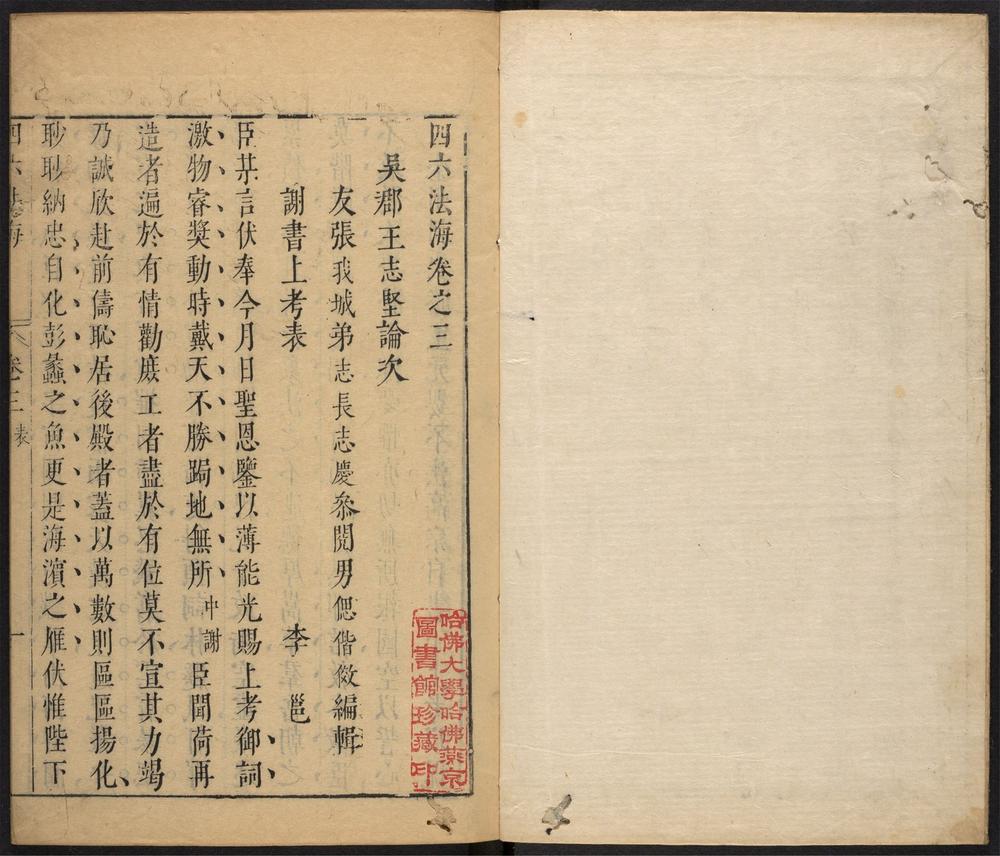 四六法海卷之三
吳郡王志堅論次
友張我城弟志長志慶叅閱男偲偕儆編輯
謝書上考表 李邕
臣某言伏奉今月日聖恩鑒以薄能光賜上考御詞
激物睿獎動時戴天不勝跼地無所中謝臣聞荷再
造者遍於有情勸庶工者盡於有位莫不宣其力竭
乃誠欣赴前儔恥居後殿者蓋以萬數則區區揚化
眇眇納忠自化彭蠡之魚更是海濵之雁伏惟陛下
四六法海 卷三 表 一
哈佛大學哈佛燕京
圖書館珍藏印